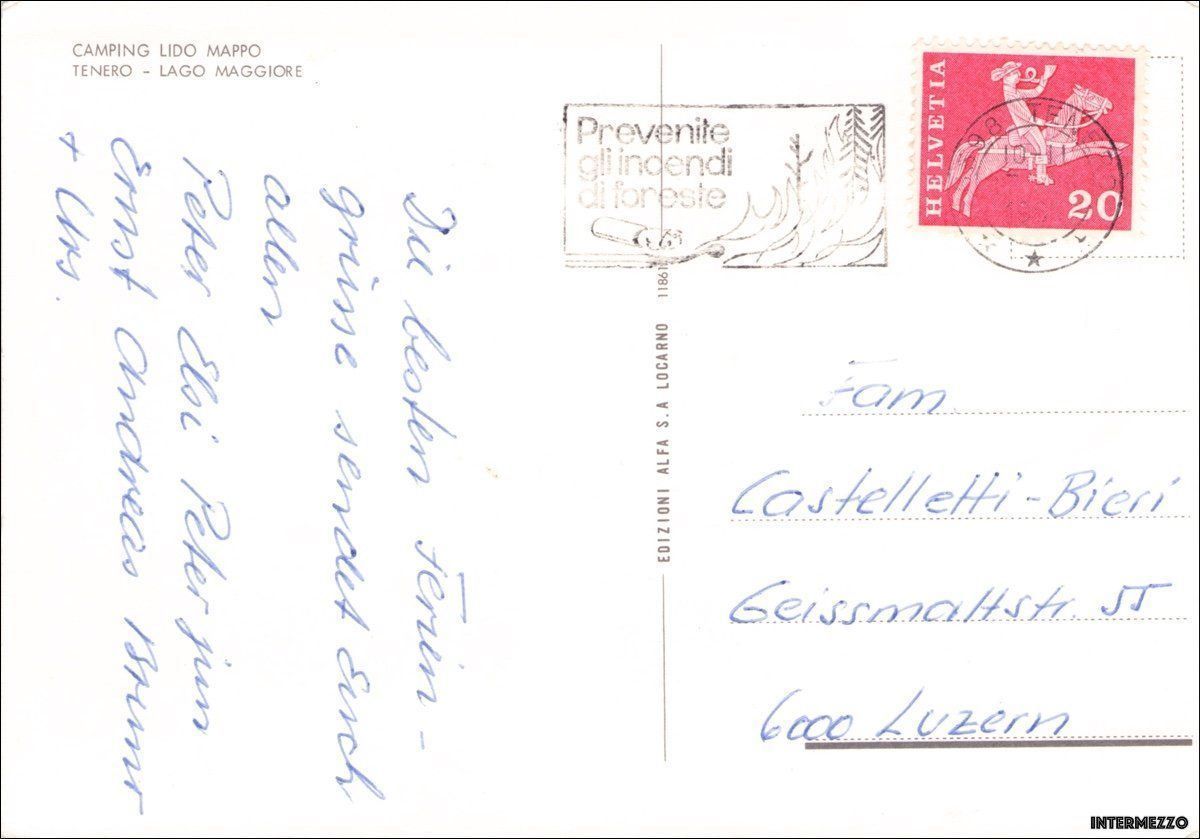 CAMPING LIDO MAPPO
TENERO – LAGO MAGGIORE
Die besten Ferien-
grüsse sendet Euch
allen
Peter Elsi Peter jun
Ernst Andreas Bruno
+ Urs.
EDIZIONI ALFA S.A LOCARNO 11861
Prevenite
gli incendi
di foreste
HELVETIA
20
10-11
Fam.
Castelletti-Bieri
Geissmattstr. 55
6000 Luzern
INTERMEZZO